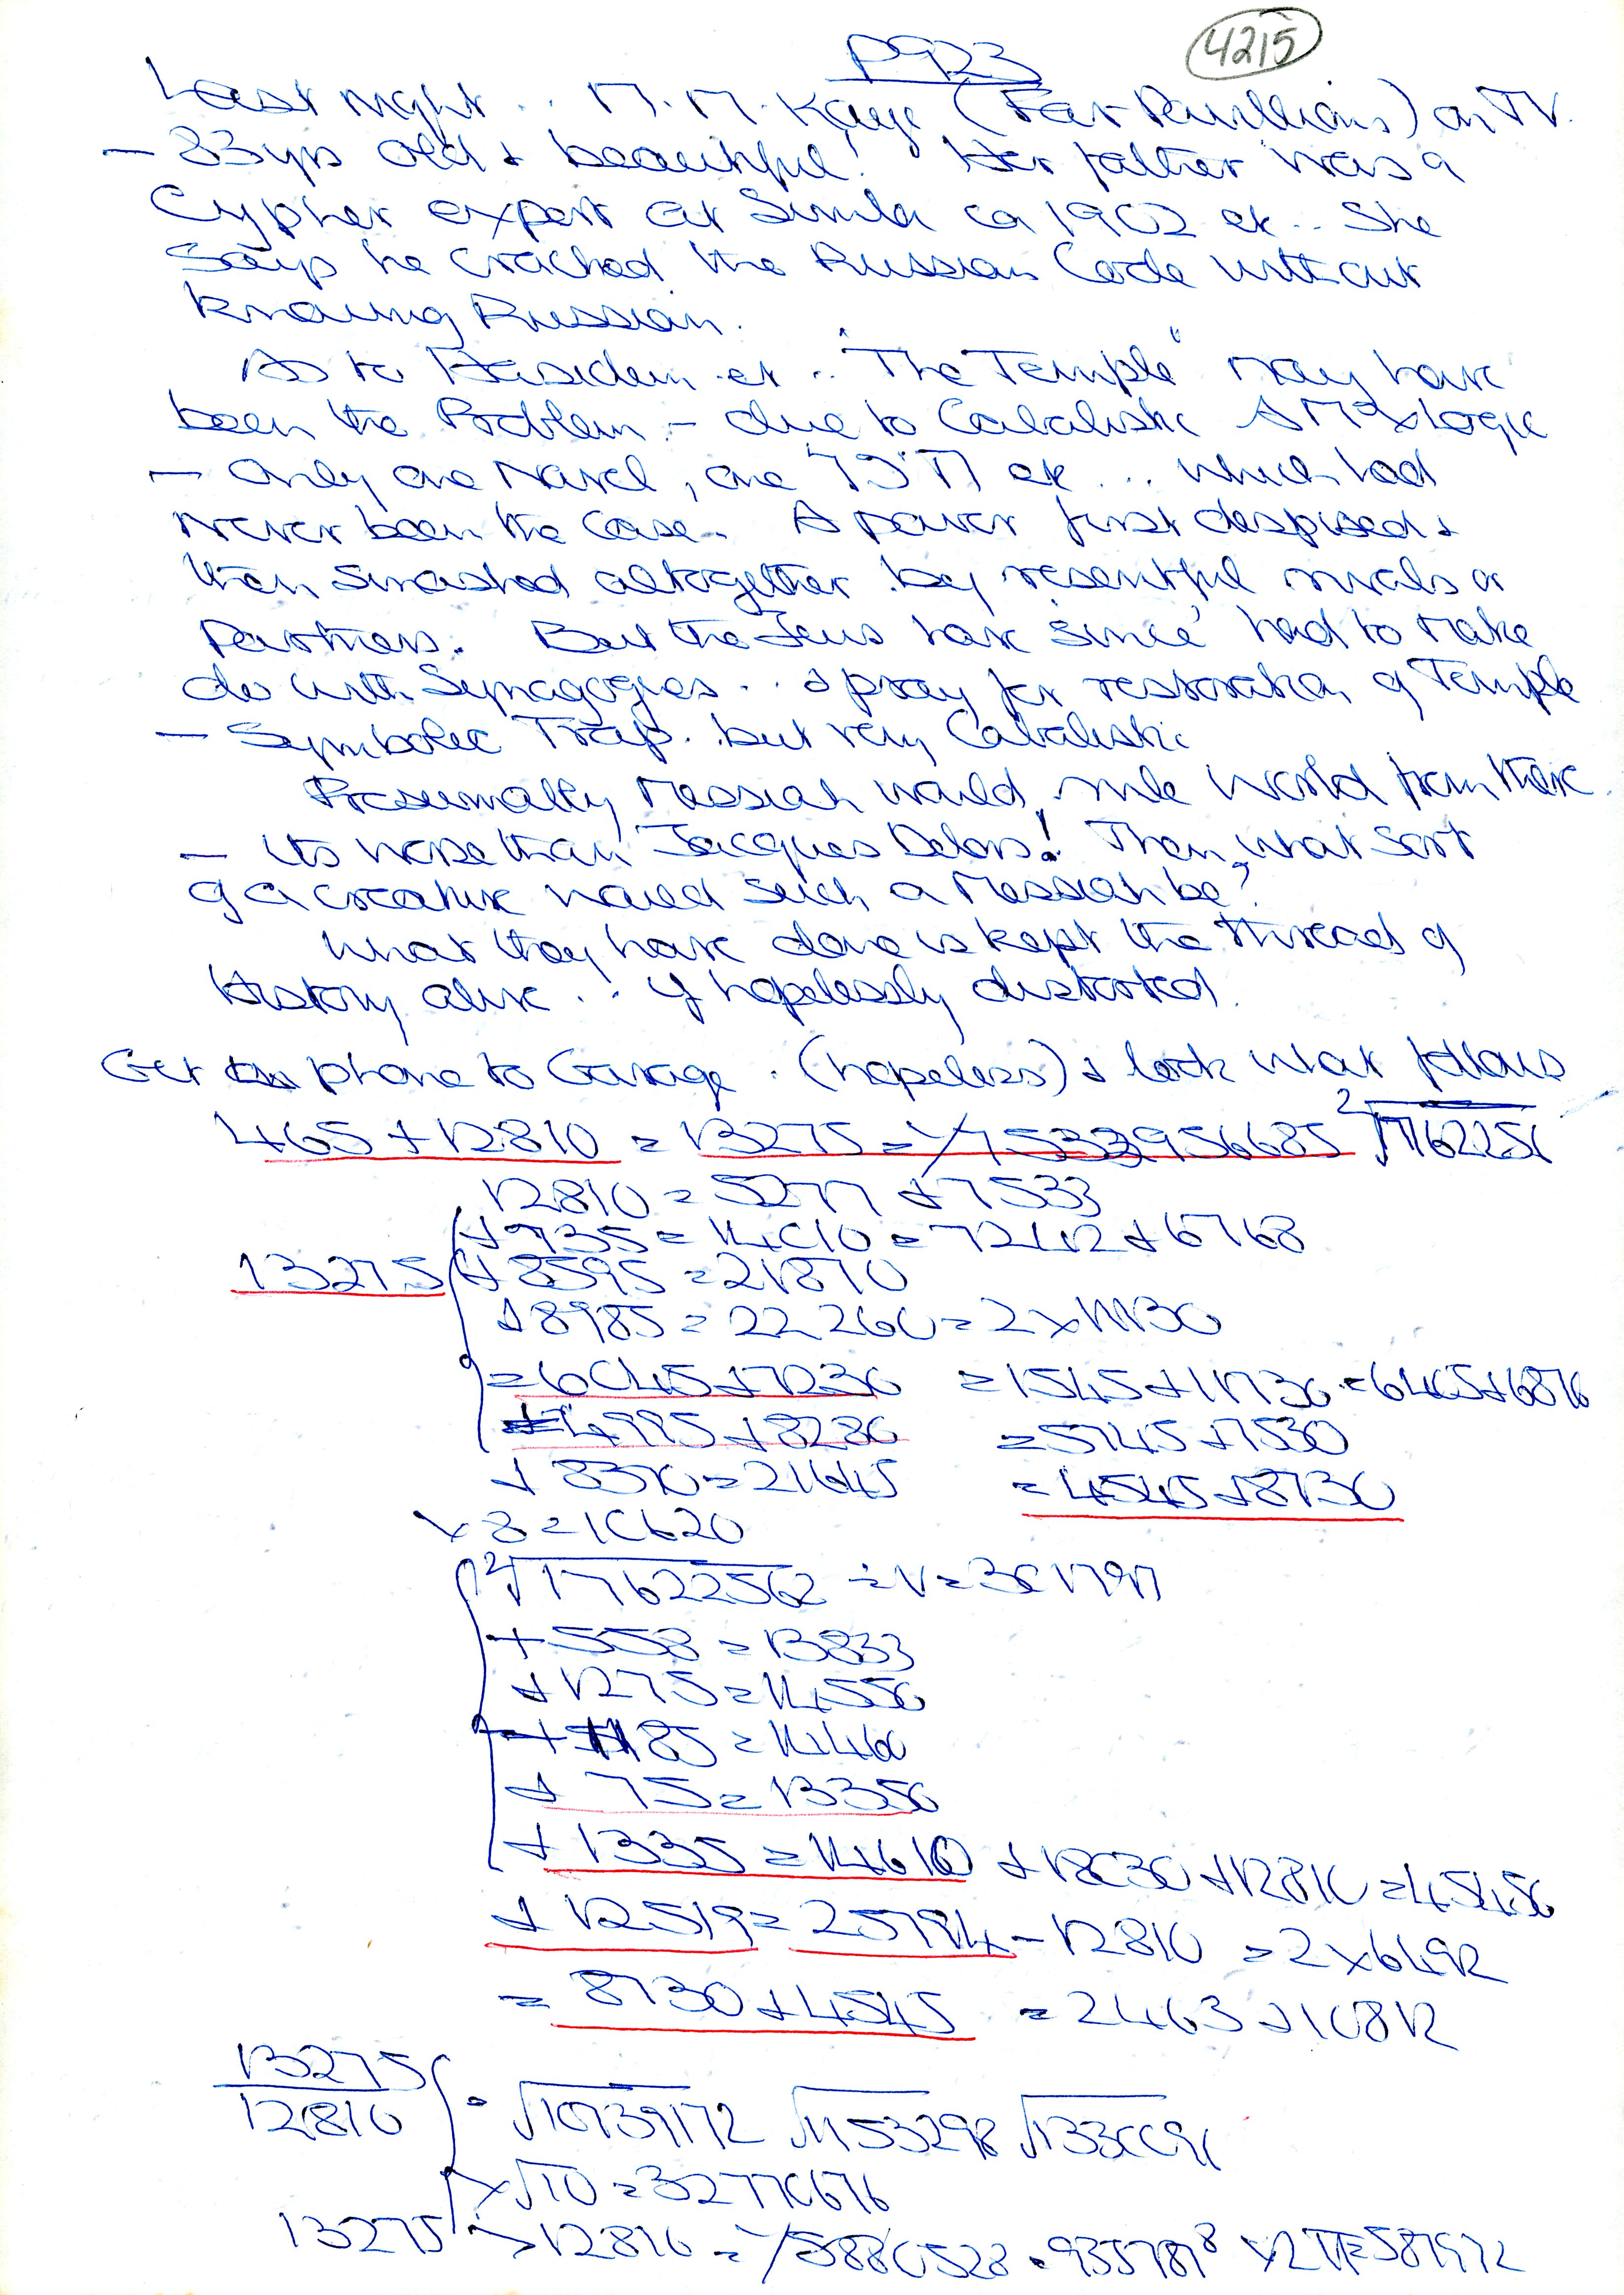 P923
4215
Last night .. M.M. Kaye (Far Pavillions) on TV.
- 83yrs old & beautiful! Her father was a
Cypher expert at Simla ca 1902 etc.. She
says he cracked the Russian Code without
knowing Russian.
As to etc .. "The Temple" may have
been the Problem - due to Cabalistic Logic
- Only one Navel, one etc ... which had
never been the case. A power first despised &
then smashed altogether by resentful rivals or
Partners. But the Jews have 'since' had to make
do with Synagogues .. & pray for restoration of Temple
- Symbolic Trap .. but very Cabalistic
Presumably Messiah would rule World from there
- its worse than Jacques Delors! Then what sort
of a creature would such a Messiah be?
What they have done is kept the thread of
History alive .. if hopelessly distorted.
Get phone to Garage . (hopeless) & look what follows
465 + 12810 = 13275 = 2√1762256
12810 = 5277 + 7533
+ 735 = 14010 = 7242 + 6768
13275 + 8595 = 21870
+ 8985 = 22260 = 2 x 11130
= 6045 + 7230 = 1545 + 11730 = 6405 + 6870
= 4995 + 8280 = 5745 + 7530
+ 8370 = 21645 = 4545 + 8730
x 8 = 10620
2√17622562
+ 558 = 13833
+ 1275 = 14550
+ 1185 = 14460
+ 75 = 13350
+ 1335 = 14610 + 18030 + 12810 = 45450
+ 12519 = 25794 - 12810 = 2 x 6492
= 8730 + 4545 = 2463 + 10812
13275
12810 = √10739172 √1153298 √1330091
x √10 = 32770676
13275 > 12810 = x 2π = 587972